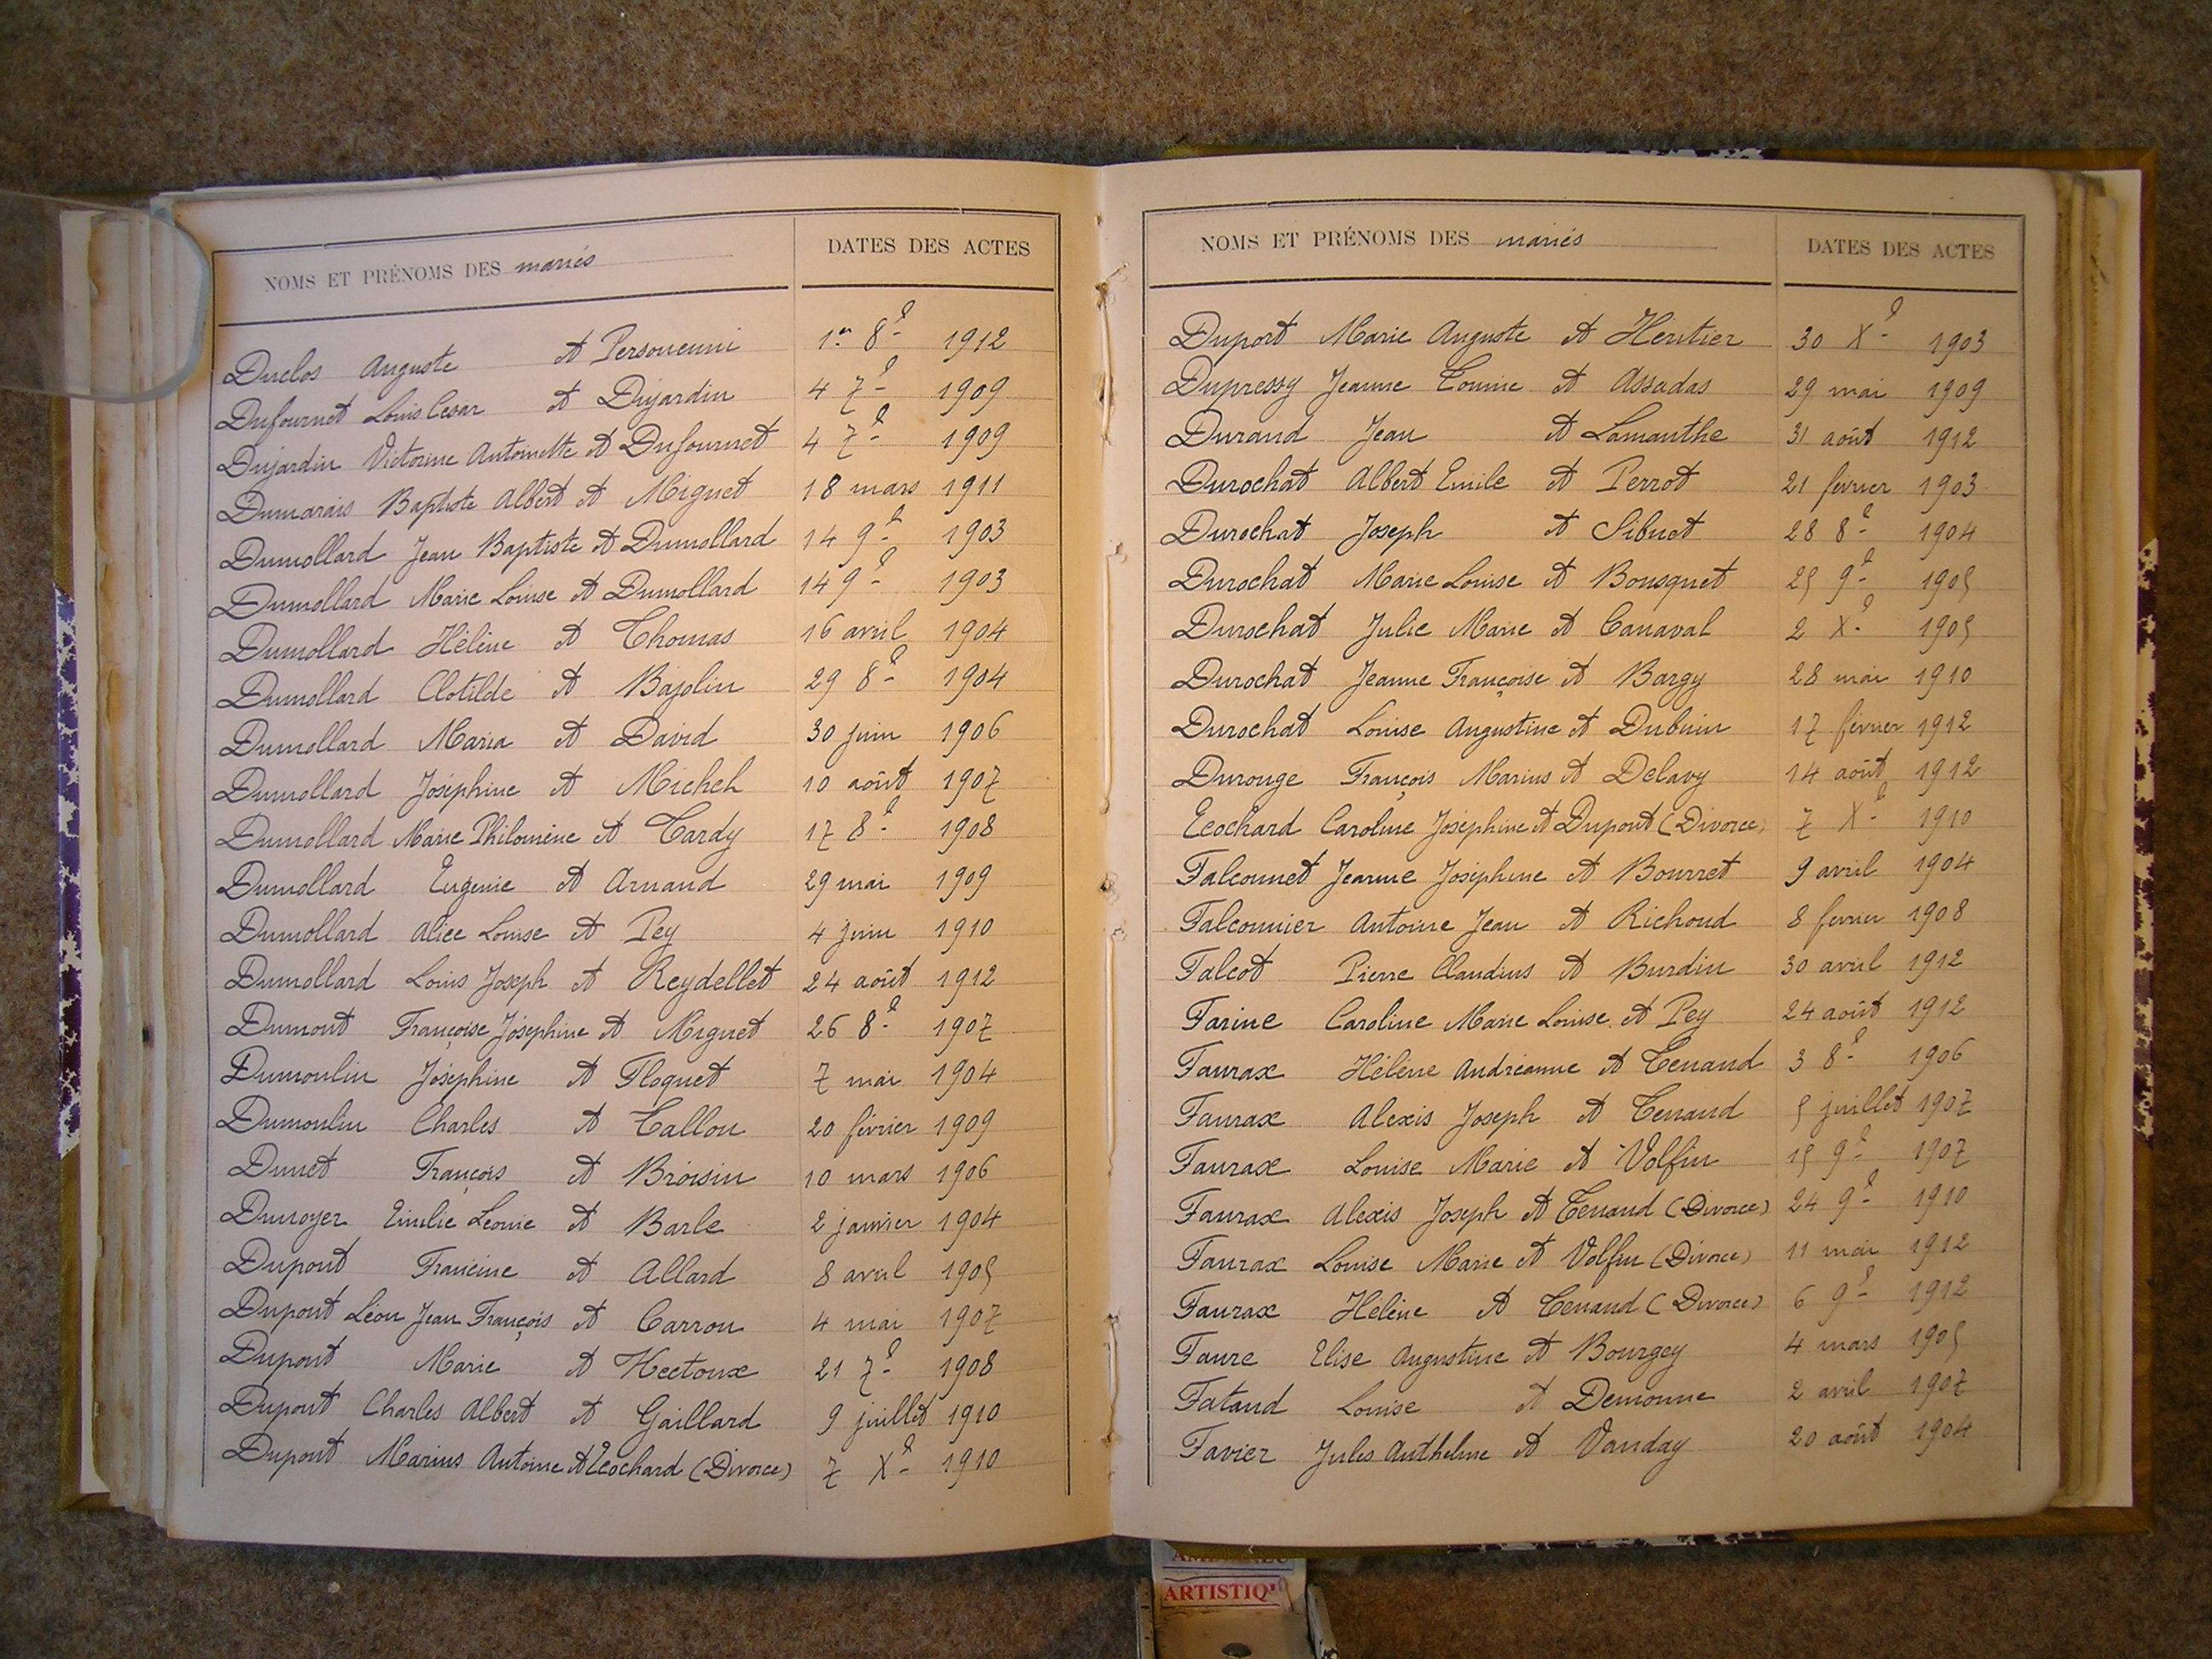 NOMS ET PRÉNOMS DES mariés DATES DES ACTES
Duclos Auguste et 1er 8e 1912
Dufournet Louis Cesar et Dujardin 4 7e 1909
Dujardin Victorine Antoinette et Dufournet 4 7e 1909
Dumarais Baptiste Albert et Miguet 18 mars 1911
Dumollard Jean Baptiste et Dumollard 14 9e 1903
Dumollard Marie Louise et Dumollard 14 9e 1903
Dumollard Hélène et Thomas 16 avril 1904
Dumollard Clotilde et Bajolin 29 8e 1904
Dumollard Maria et David 30 juin 1906
Dumollard Joséphine et Michel 10 août 1907
Dumollard Marie Philomène et Tardy 17 8e 1908
Dumollard Eugenie et Arnaud 29 mai 1909
Dumollard Alice Louise et Pey 4 juin 1910
Dumollard Louis Joseph et Reydellet 24 août 1912
Dumont Françoise Joséphine et Miguet 26 8e 1907
Dumoulin Joséphine et Floquet 7 mai 1904
Dumoulin Charles et Tallon 20 février 1909
Dunet François et Broisin 10 mars 1906
Dunoyer Emilie Leonie et Barle 2 janvier 1904
Dupont Francine et Allard 8 avril 1905
Dupont Léon Jean François et Carron 4 mai 1907
Dupont Marie et Hectoux 21 7e 1908
Dupont Charles Albert et Gaillard 9 juillet 1910
Dupont Marius Antoine et Ecochard (Divorce) 7 Xe 1910
NOMS ET PRÉNOMS DES mariés DATES DES ACTES
Duport Marie Auguste et Héritier 30 Xe 1903
Dupressy Jeanne Louise et Assadas 29 mai 1909
Durand Jean et Lamanthe 31 août 1912
Durochat Albert Emile et Perrot 21 fevrier 1903
Durochat Joseph et Sibuet 28 8e 1904
Durochat Marie Louise et Bousquet 25 9e 1905
Durochat Julie Marie et Canaval 2 Xe 1905
Durochat Jeanne Françoise et Bargy 28 mai 1910
Durochat Louise Augustine et Dubuin 17 février 1912
Durouge François Marius et Delavy 14 août 1912
Ecochard Caroline Joséphine et Dupont (Divorce) 7 Xe 1910
Falconnet Jeanne Joséphine et Bourret 9 avril 1904
Falconnier Antoine Jean et Richoud 8 fevrier 1908
Falcot Pierre Claudius et Burdin 30 avril 1912
Farine Caroline Marie Louise et Pey 24 août 1912
Faurax Hélène Andréanne et Tenand 3 8e 1906
Faurax Alexis Joseph et Tenand 5 juillet 1907
Faurax Louise Marie et Volfin 15 9e 1907
Faurax Alexis Joseph et Tenand (Divorce) 24 9e 1910
Faurax Louise Marie et Volfin (Divorce) 11 mai 1912
Faurax Hélène et Tenand (Divorce) 6 9e 1912
Faure Elise Augustine et Bourgey 4 mars 1905
Fataud Louise et Demonne 2 avril 1907
Favier Jules Anthelme et Vanday 20 août 1904
ARTISTIQ